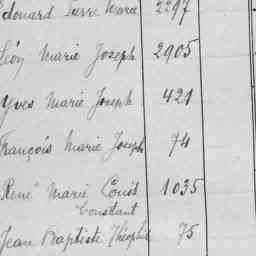 Edouard Pierre Marie 2297
Léon Marie Joseph 2905
Yves Marie Joseph 421
François Marie Joseph 74
René Marie Louis 1035
Constant
Jean Baptiste Théophile 75